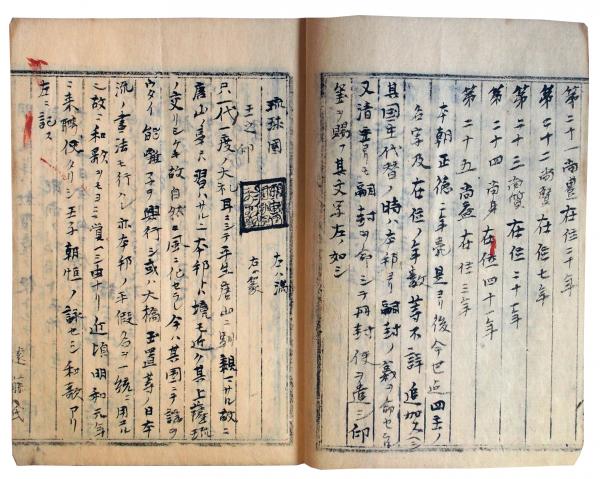 第二十一尚豊在位二十年
第二十二尚賢在位七年
第二十三尚質在位二十一年
第二十四尚貞在位四十一年
第二十五尚益在位三年
本朝正徳二 是ヨリ後今 四 ノ
名字及在位ノ年数等不詳追加スヘシ
其国王代替ノ時ハ本邦ヨリ嗣封ノ義ヲ命セ
又清主ヨリモ嗣封ヲ命シテ冊封使ヲ遣シ印
ヲ賜フ其文字左ノ如シ
琉球國
王之印
左ハ満
右ハ篆
只一代一度ノ大礼耳ニシテ平生唐山ニ親マサル故ニ
唐山ノ事ハ習ハサルニ本邦トハ境モ近ク其上薩琉
ノ交リシケキ故自然ト風ニ化セラレ今ハ其国ニテ謡ヲ
ウタイ能囃子ヲ興行シ或ハ大橋玉置等ノ日本
流ノ書法モ行ハレ亦本邦ノ平假名ヲ一統ニ用ユル
故ニ和歌ヲモヨミ 由ナリ近頃明和元年
ニ来聘使タリシ王子朝恒ノ詠セシ和歌アリ
左ニ記ス